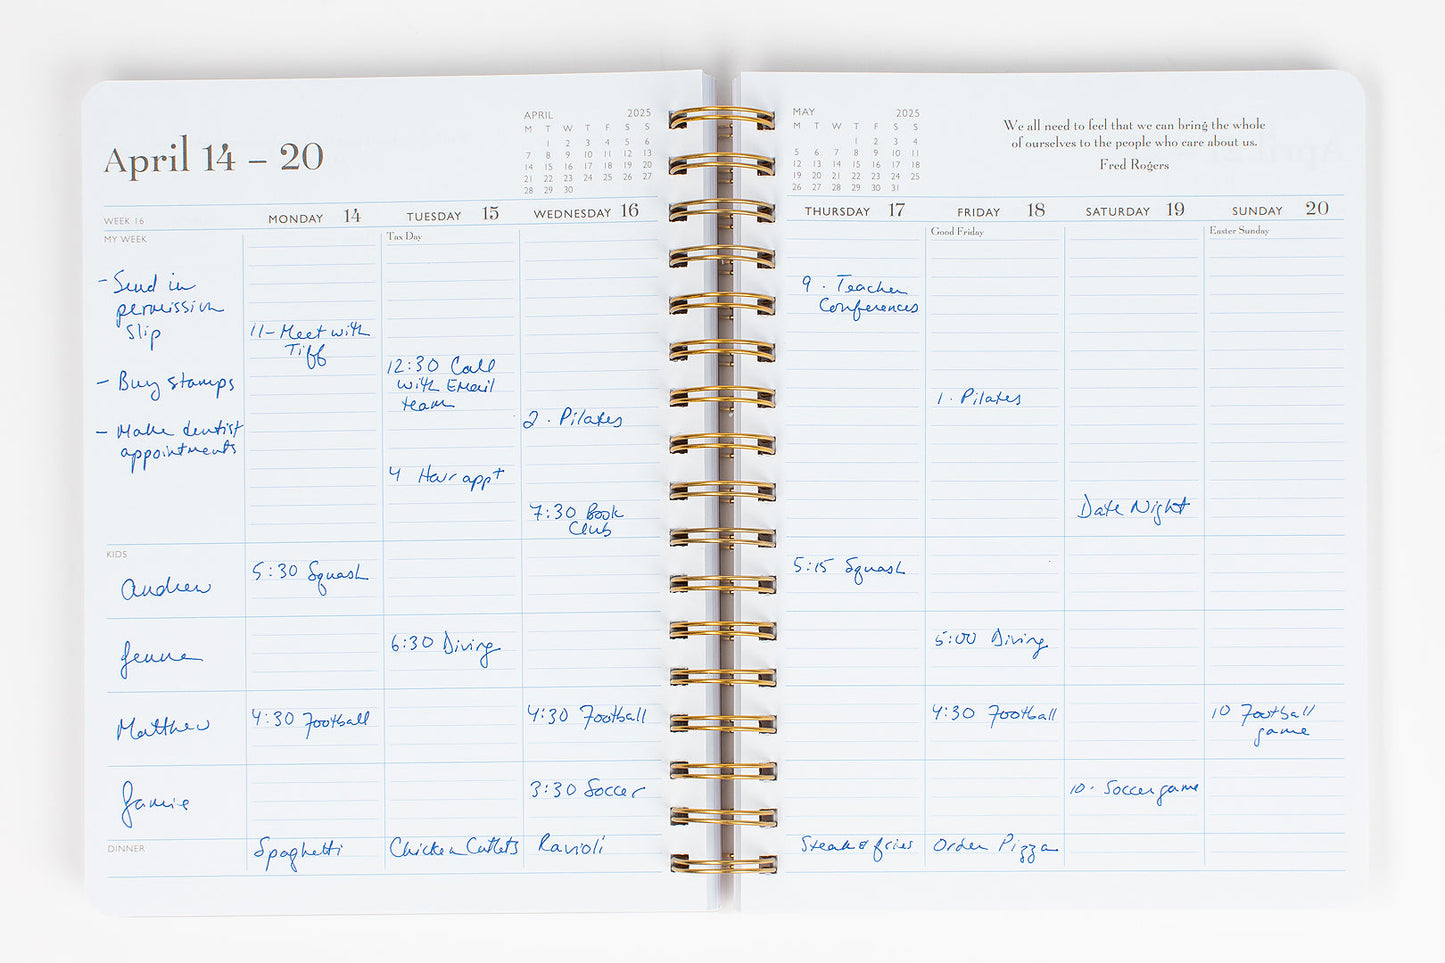 April 14 – 20
APRIL 2025
M T W T F S S
1 2 3 4 5 6
7 8 9 10 11 12 13
14 15 16 17 18 19 20
21 22 23 24 25 26 27
28 29 30
WEEK 16
MONDAY 14
TUESDAY 15
WEDNESDAY 16
MY WEEK
Tax Day
– Send in
permission
slip
– Buy stamps
– Make dentist
appointments
11 – Meet with
Tiff
12:30 Call
with Email
team
4 Hair appt
2 · Pilates
7:30 Book
Club
KIDS
Andrew
5:30 Squash
Jenna
6:30 Diving
Matthew
4:30 Football
4:30 Football
Jamie
3:30 Soccer
DINNER
Spaghetti
Chicken Cutlets
Ravioli
MAY 2025
M T W T F S S
1 2 3 4
5 6 7 8 9 10 11
12 13 14 15 16 17 18
19 20 21 22 23 24 25
26 27 28 29 30 31
We all need to feel that we can bring the whole
of ourselves to the people who care about us.
Fred Rogers
THURSDAY 17
FRIDAY 18
SATURDAY 19
SUNDAY 20
Good Friday
Easter Sunday
9 · Teacher
Conferences
1 · Pilates
Date Night
5:15 Squash
5:00 Diving
4:30 Football
10 Football
game
10 · Soccer game
Steak & fries
Order Pizza